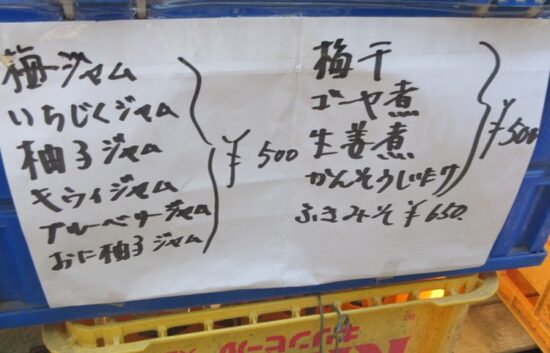 梅ジャム
いちじくジャム
柚子ジャム
キウィジャム
ブルーベリージャム
おに柚子ジャム
¥500
梅干
ゴーヤ煮
生姜煮
かんそうしいたけ
¥500
ふきみそ ¥650.
キリンビール